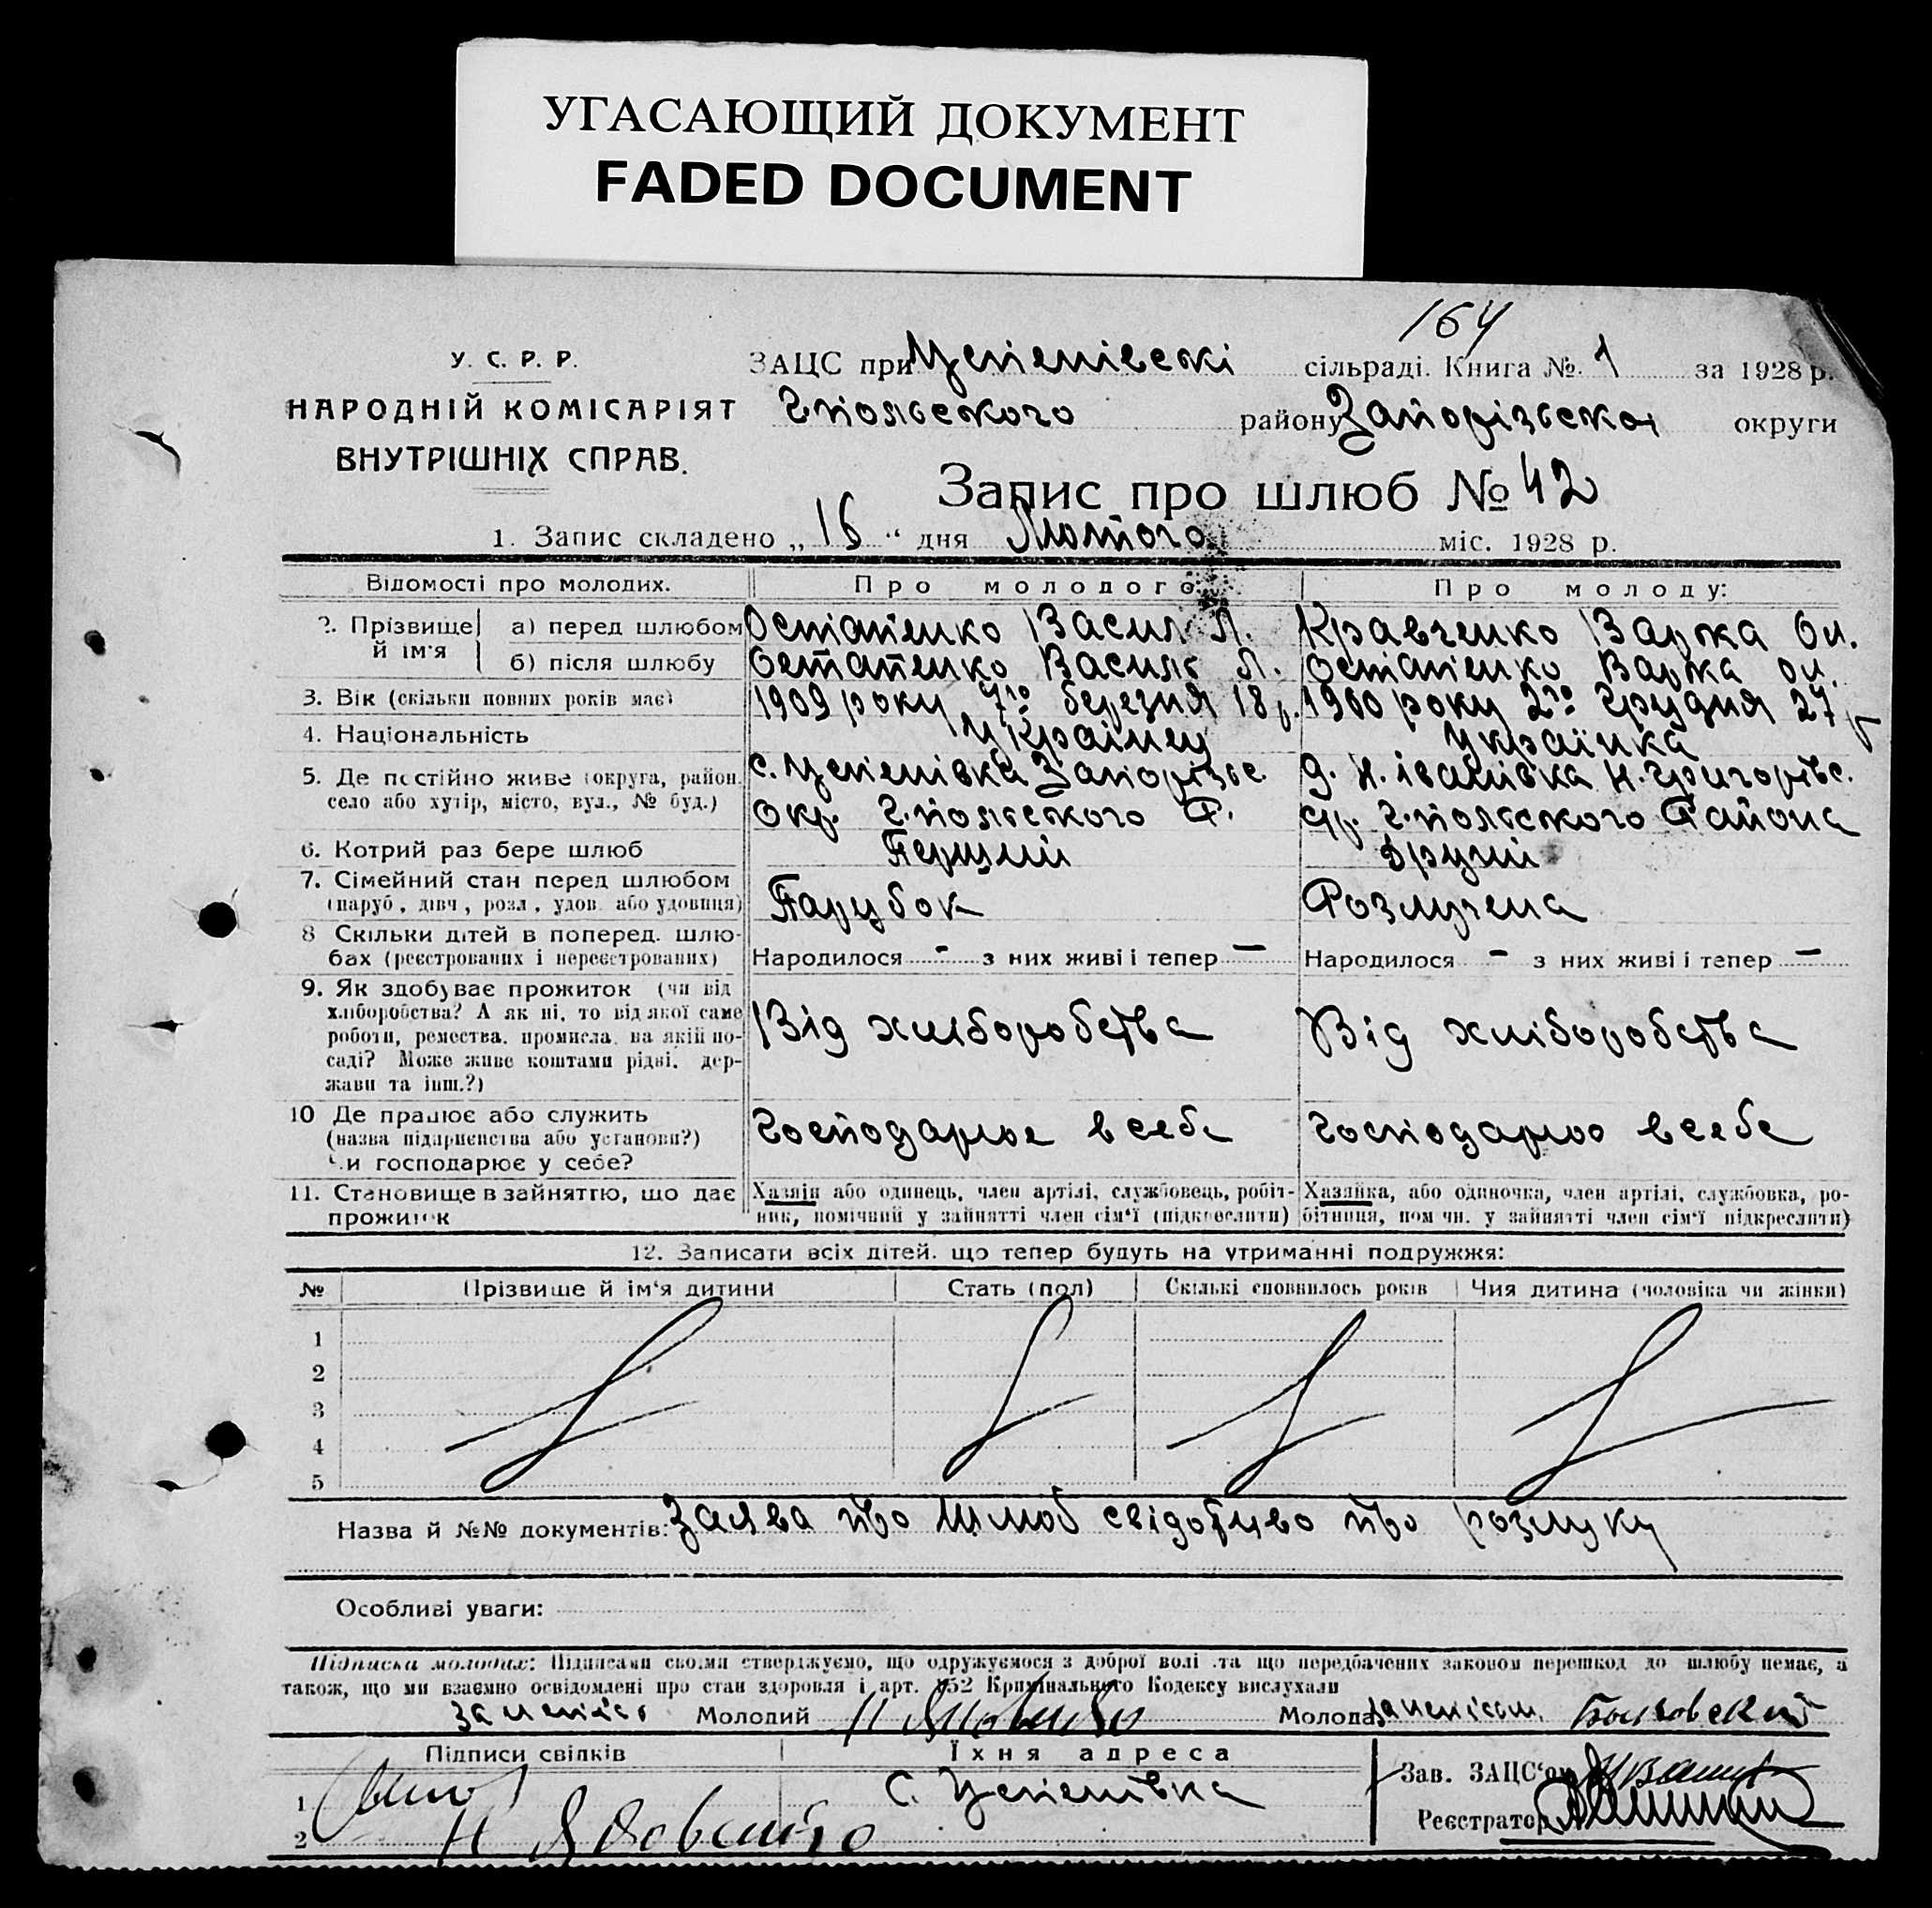 УГАСАЮЩИЙ ДОКУМЕНТ
FADED DOCUMENT
164
У. С. Р. Р.
НАРОДНІЙ КОМІСАРІЯТ
ВНУТРІШНІХ СПРАВ.
ЗАЦС при Успенівські сільраді. Книга № 1 за 1928 р.
Г.польського району Запорізької округи
Запис про шлюб № 42
1. Запис складено „ 16 “ дня Лютого міс. 1928 р.
Відомості про молодих. Про молодого: Про молоду:
2. Прізвище й ім'я а) перед шлюбом Остапенко Василь Л. Кравченко Варка Ол.
б) після шлюбу Остапенко Василь Л. Остапенко Варка Ол.
3. Вік (скільки повних років має) 1909 року 7го березня 18 р. 1900 року 2го Грудня 27 р
4. Національність Украінец Українка
5. Де постійно живе (округа, район. с. Успенівка Запорізьс. д. Н. Іванівка Н. Григорівс.
село або хутір, місто, вул., № буд.) Окр. Г.польського Р. Г.польського Района
6. Котрий раз бере шлюб Перший Другий
7. Сімейний стан перед шлюбом Парубок Розлучена
(паруб., дівч., розл., удов. або удовиця)
8 Скільки дітей в поперед. шлюбах (реєстрованих і нереєстрованих) Народилося - з них живі і тепер — Народилося - з них живі і тепер —
9. Як здобуває прожиток (чи від
хліборобства? А як ні, то від якої саме Від хліборобства Від хліборобства
роботи, ремества, промисла, на якій по-
саді? Може живе коштами рідні, дер-
жави та інш.?)
10 Де працює або служить Господарює в себе Господарює в себе
(назва підприємства або установи?)
Чи господарює у себе?
11. Становище в зайняттю, що дає Хазяін або одинець, член артілі, службовець, робіт- Хазяйка, або одиночка, член артілі, службовка, ро-
прожиток ник, помічний у зайнятті член сім'ї (підкреслити) бітниця, помічн. у зайнятті член сім'ї підкреслити)
12. Записати всіх дітей, що тепер будуть на утриманні подружжя:
№ Прізвище й ім‘я дитини Стать (пол) Скількі сповнилось років Чия дитина (чоловіка чи жінки)
1
2
3
4
5
Назва й №№ документів: Заява про шлюб свідоцтво про розлуку
Особливі уваги:
Підписка молодих: Підписами своіми стверджуємо, що одружуємося з доброї волі та що передбачених законом перешкод до шлюбу немає, а
також, що ми взаємно освідомлені про стан здоровля і арт. 152 Кримінального Кодексу вислухали
Молодий Молода
Підписи свідків Їхня адреса
Зав. ЗАЦС‘ом
1 С. Успенівка
Реєстратор
2